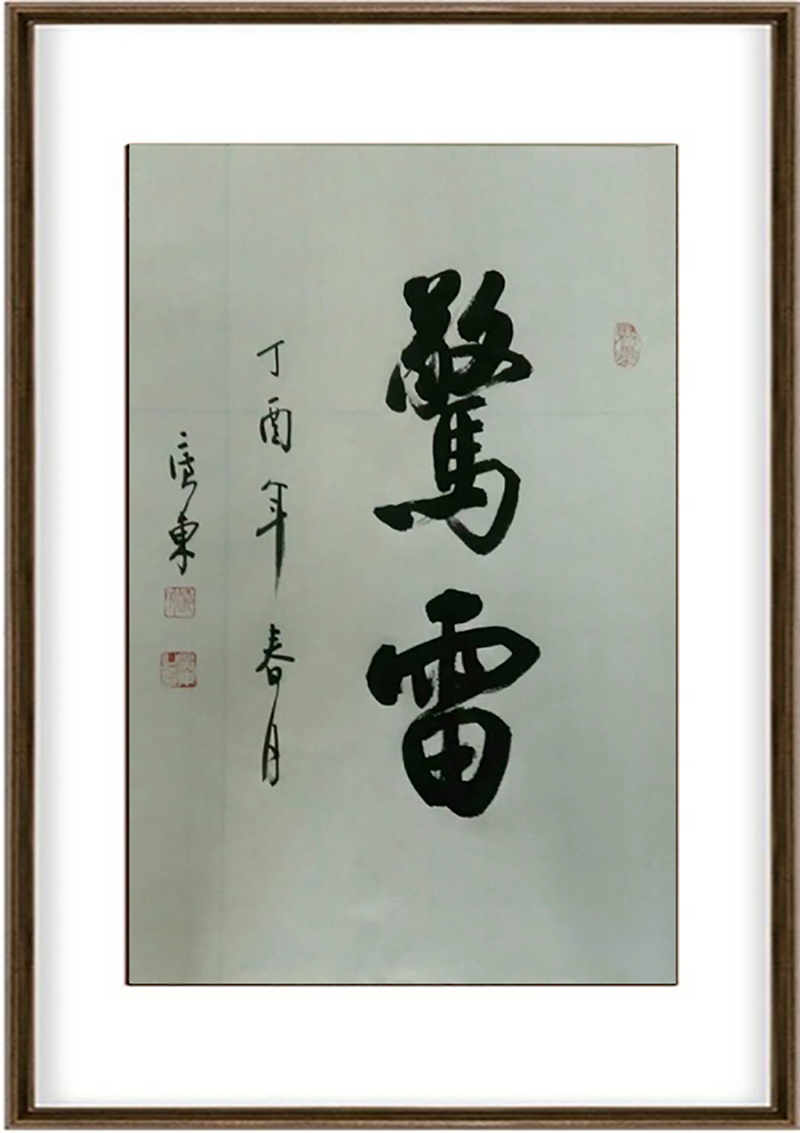 驚雷
丁酉年春月
東